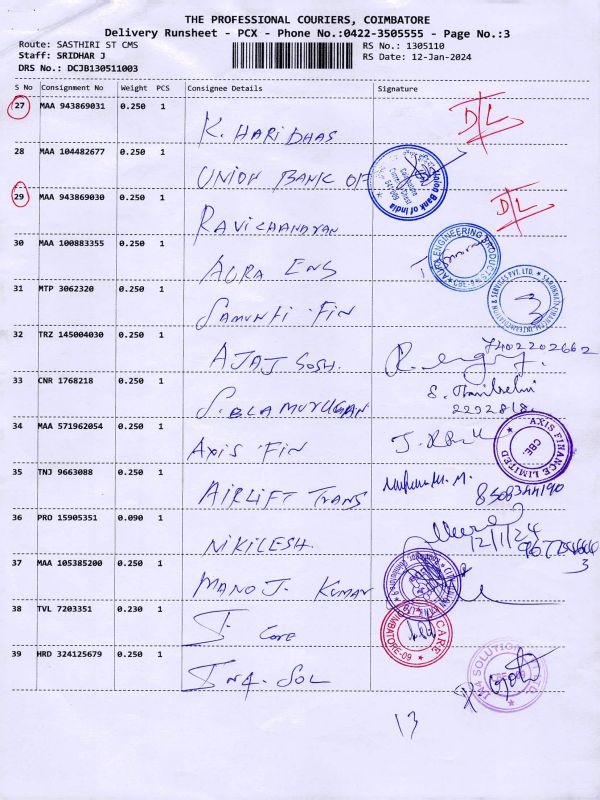 THE PROFESSIONAL COURIERS, COIMBATORE
Delivery Runsheet - PCX - Phone No.:0422-3505555 - Page No.:3
Route: SASTHIRI ST CMS
RS No.: 1305110
Staff: SRIDHAR J
RS Date: 12-Jan-2024
DRS No.: DCJB130511003
S No Consignment No Weight PCS Consignee Details Signature
27 MAA 943869031 0.250 1
K. HARI DHAS
D/L
28 MAA 104482677 0.250 1
UNION BANK OF
Union Bank of India
29 MAA 943869030 0.250 1
RAVICHANDRAN
D/L
30 MAA 100883355 0.250 1
AURA ENG
AURA ENGINEERING PRODUCTS
31 MTP 3062320 0.250 1
SAMUNTI FIN
3
32 TRZ 145004030 0.250 1
AJAJ SOSH.
7402202662
33 CNR 1768218 0.250 1
S. BLAMURUGAN
34 MAA 571962054 0.250 1
AXIS FIN
AXIS FINANCE LIMITED
CBE
35 TNJ 9663088 0.250 1
AIRLIFT TRANS
8508344190
36 PRO 15905351 0.090 1
NIKILESH.
12/1/24
37 MAA 105385200 0.250 1
MANOJ. KUMAR
38 TVL 7203351 0.230 1
I- CARE
COIMBATORE-09
CARE
39 HRD 324125679 0.250 1
IN4. SOL
IN4 SOLUTION
13